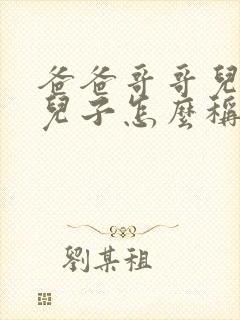 爸爸哥哥兒
兒子怎麼稱
劉某祖